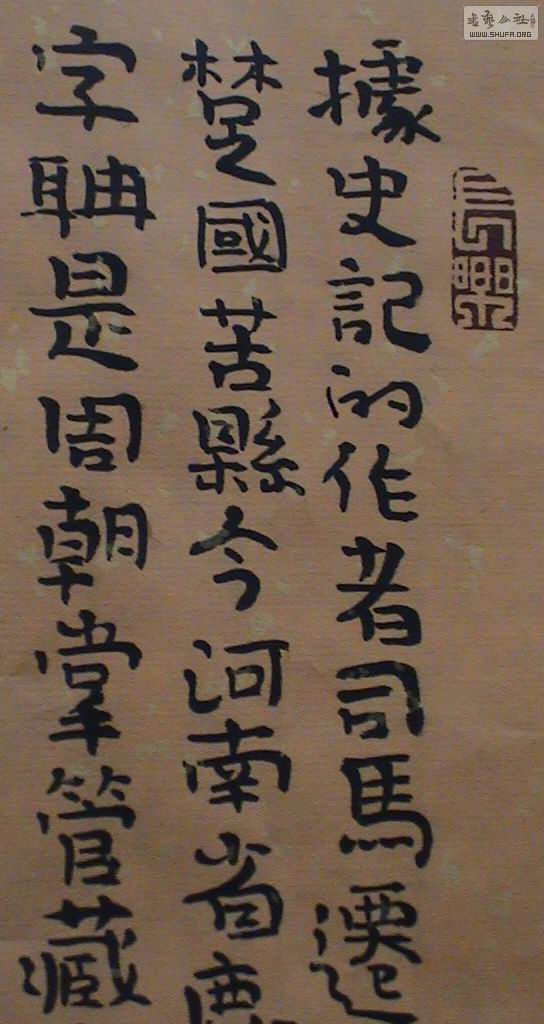 據史記的作者司馬遷
楚國苦縣今河南省鹿
字聃是周朝掌管藏
WWW.SHUFA.ORG